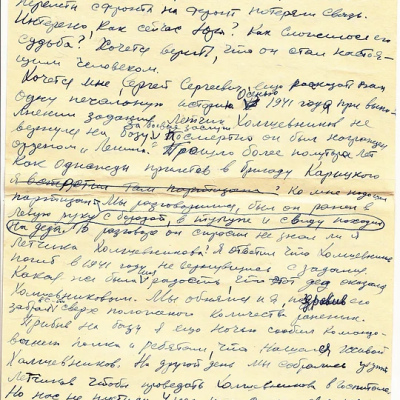 перелета с фронта на фронт потеряли связь.
Интересно, как сейчас ? Как сложилась его
судьба? Хочется верить, что он стал настоя-
щим человеком.
Хочется мне, Сергей Сергеевич, еще рассказать Вам
одну печальную историю. Осенью 1941 года при выпо-
лнении задания летчик Холмшевников не
вернулся на базу. За боевые заслуги Посмертно он был награжден
орденом "Ленина". Прошло более полутора лет
Как однажды прилетев в бригаду Карицкого
я встретил там партизана? Ко мне подошел
партизан. Мы разговорились, был он ранен в
левую руку с бородой, в тулупе и с виду походил
на деда. В разговоре он спросил не знал ли я
летчика Холмшевникова? Я ответил что Холмшевников
погиб в 1941 году, не вернувшись с задания.
Какая же была радость, что этот дед оказался
Холмшевниковым. Мы обнялись и я его
забрал сверх положенного количества раненых.
Прибыв на базу я еще ночью сообщил командо-
ванию полка и ребятам, что нашелся живой
Холмшевников. На другой день мы собрались группа
летчиков чтобы проведать Холмшевникова в госпитале
Но нас не